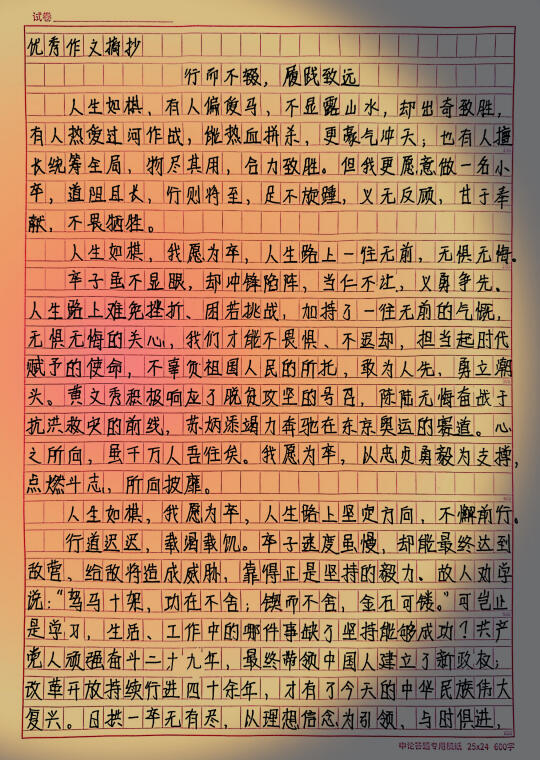 试卷
优秀作文摘抄
行而不辍，履践致远
人生如棋、有人偏傻马，不显露山水，却出奇致胜，
有人热爱过河作战，能热血拼杀，更豪气冲天；也有人擅
长统筹全局，物尽其用，合力致胜。但我更愿意做一名小
卒，道阻且长，行则将至，足不旋踵，义无反顾，甘于奉
献，不畏牺牲。
人生如棋，我愿为卒，人生路上一往无前，无惧无悔。
卒子虽不显眼，却冲锋陷阵，当仁不让，义勇争先。
人生路上难免挫折、困若挑战，加持了一往无前的气慨，
无惧无悔的关心，我们才能不畏惧、不退却，担当起时代
赋予的使命，不辜负祖国人民的所托，敢为人先，勇立潮
头。黄文秀积极响应了脱贫攻坚的号召，陈陆无悔奋战于
抗洪救灾的前线，苏炳添竭力奔驰在东京奥运的赛道。心
之所向，虽千万人吾往矣。我愿为卒，从忠贞勇毅为支撑，
点燃斗志，所向披靡。
人生如棋，我愿为卒，人生路上坚定方向，不懈前行。
行道迟迟，载渴载饥。卒子速度虽慢，却能最终达到
敌营、给敌将造成威胁，靠得正是坚持的毅力、故人劝学
说：“驽马十驾，功在不舍；锲而不舍，金石可镂。”可岂止
是学习，生活、工作中的哪件事缺了坚持能够成功？共产
党人顽强奋斗二十九年，最终带领中国人建立了新政权；
改革开放持续行进四十余年，才有了今天的中华民族伟大
复兴。日拱一卒无有尽，从理想信念为引领，与时俱进，
中论答题专用稿纸 25x24 600字